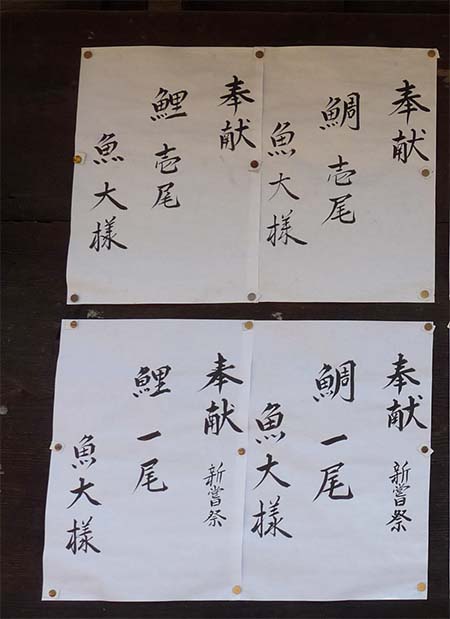 奉献
鯛壱尾
魚大様
奉献
鯉壱尾
魚大様
奉献 新嘗祭
鯛一尾
魚大様
奉献 新嘗祭
鯉一尾
魚大様